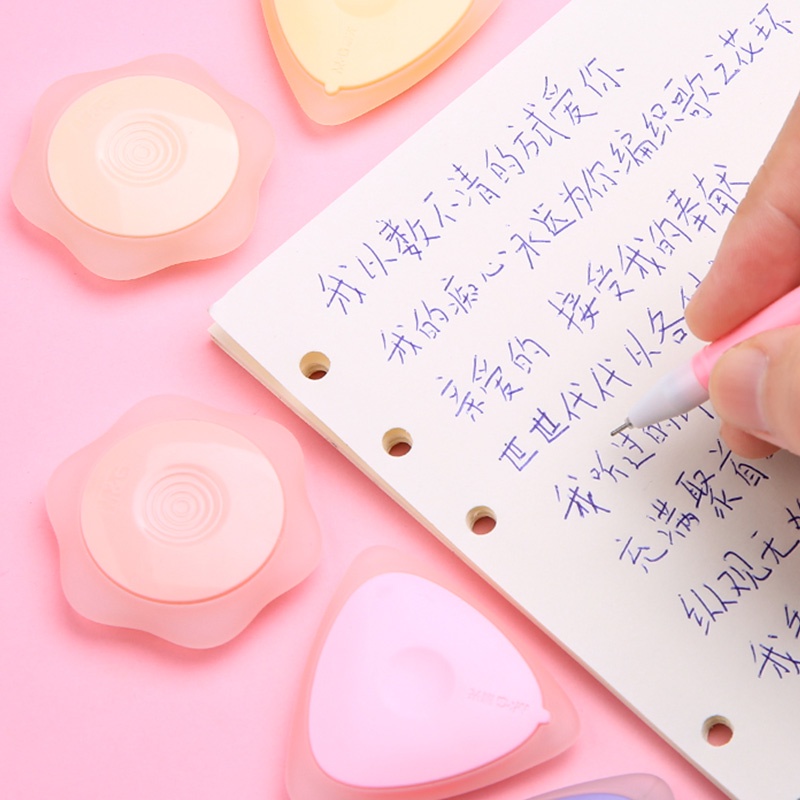 我以数不清的方式爱你
我的痴心永远为你编织歌之花环
亲爱的 接受我的奉献
世世代代以各
我听过的
充满聚首
纵观无
我